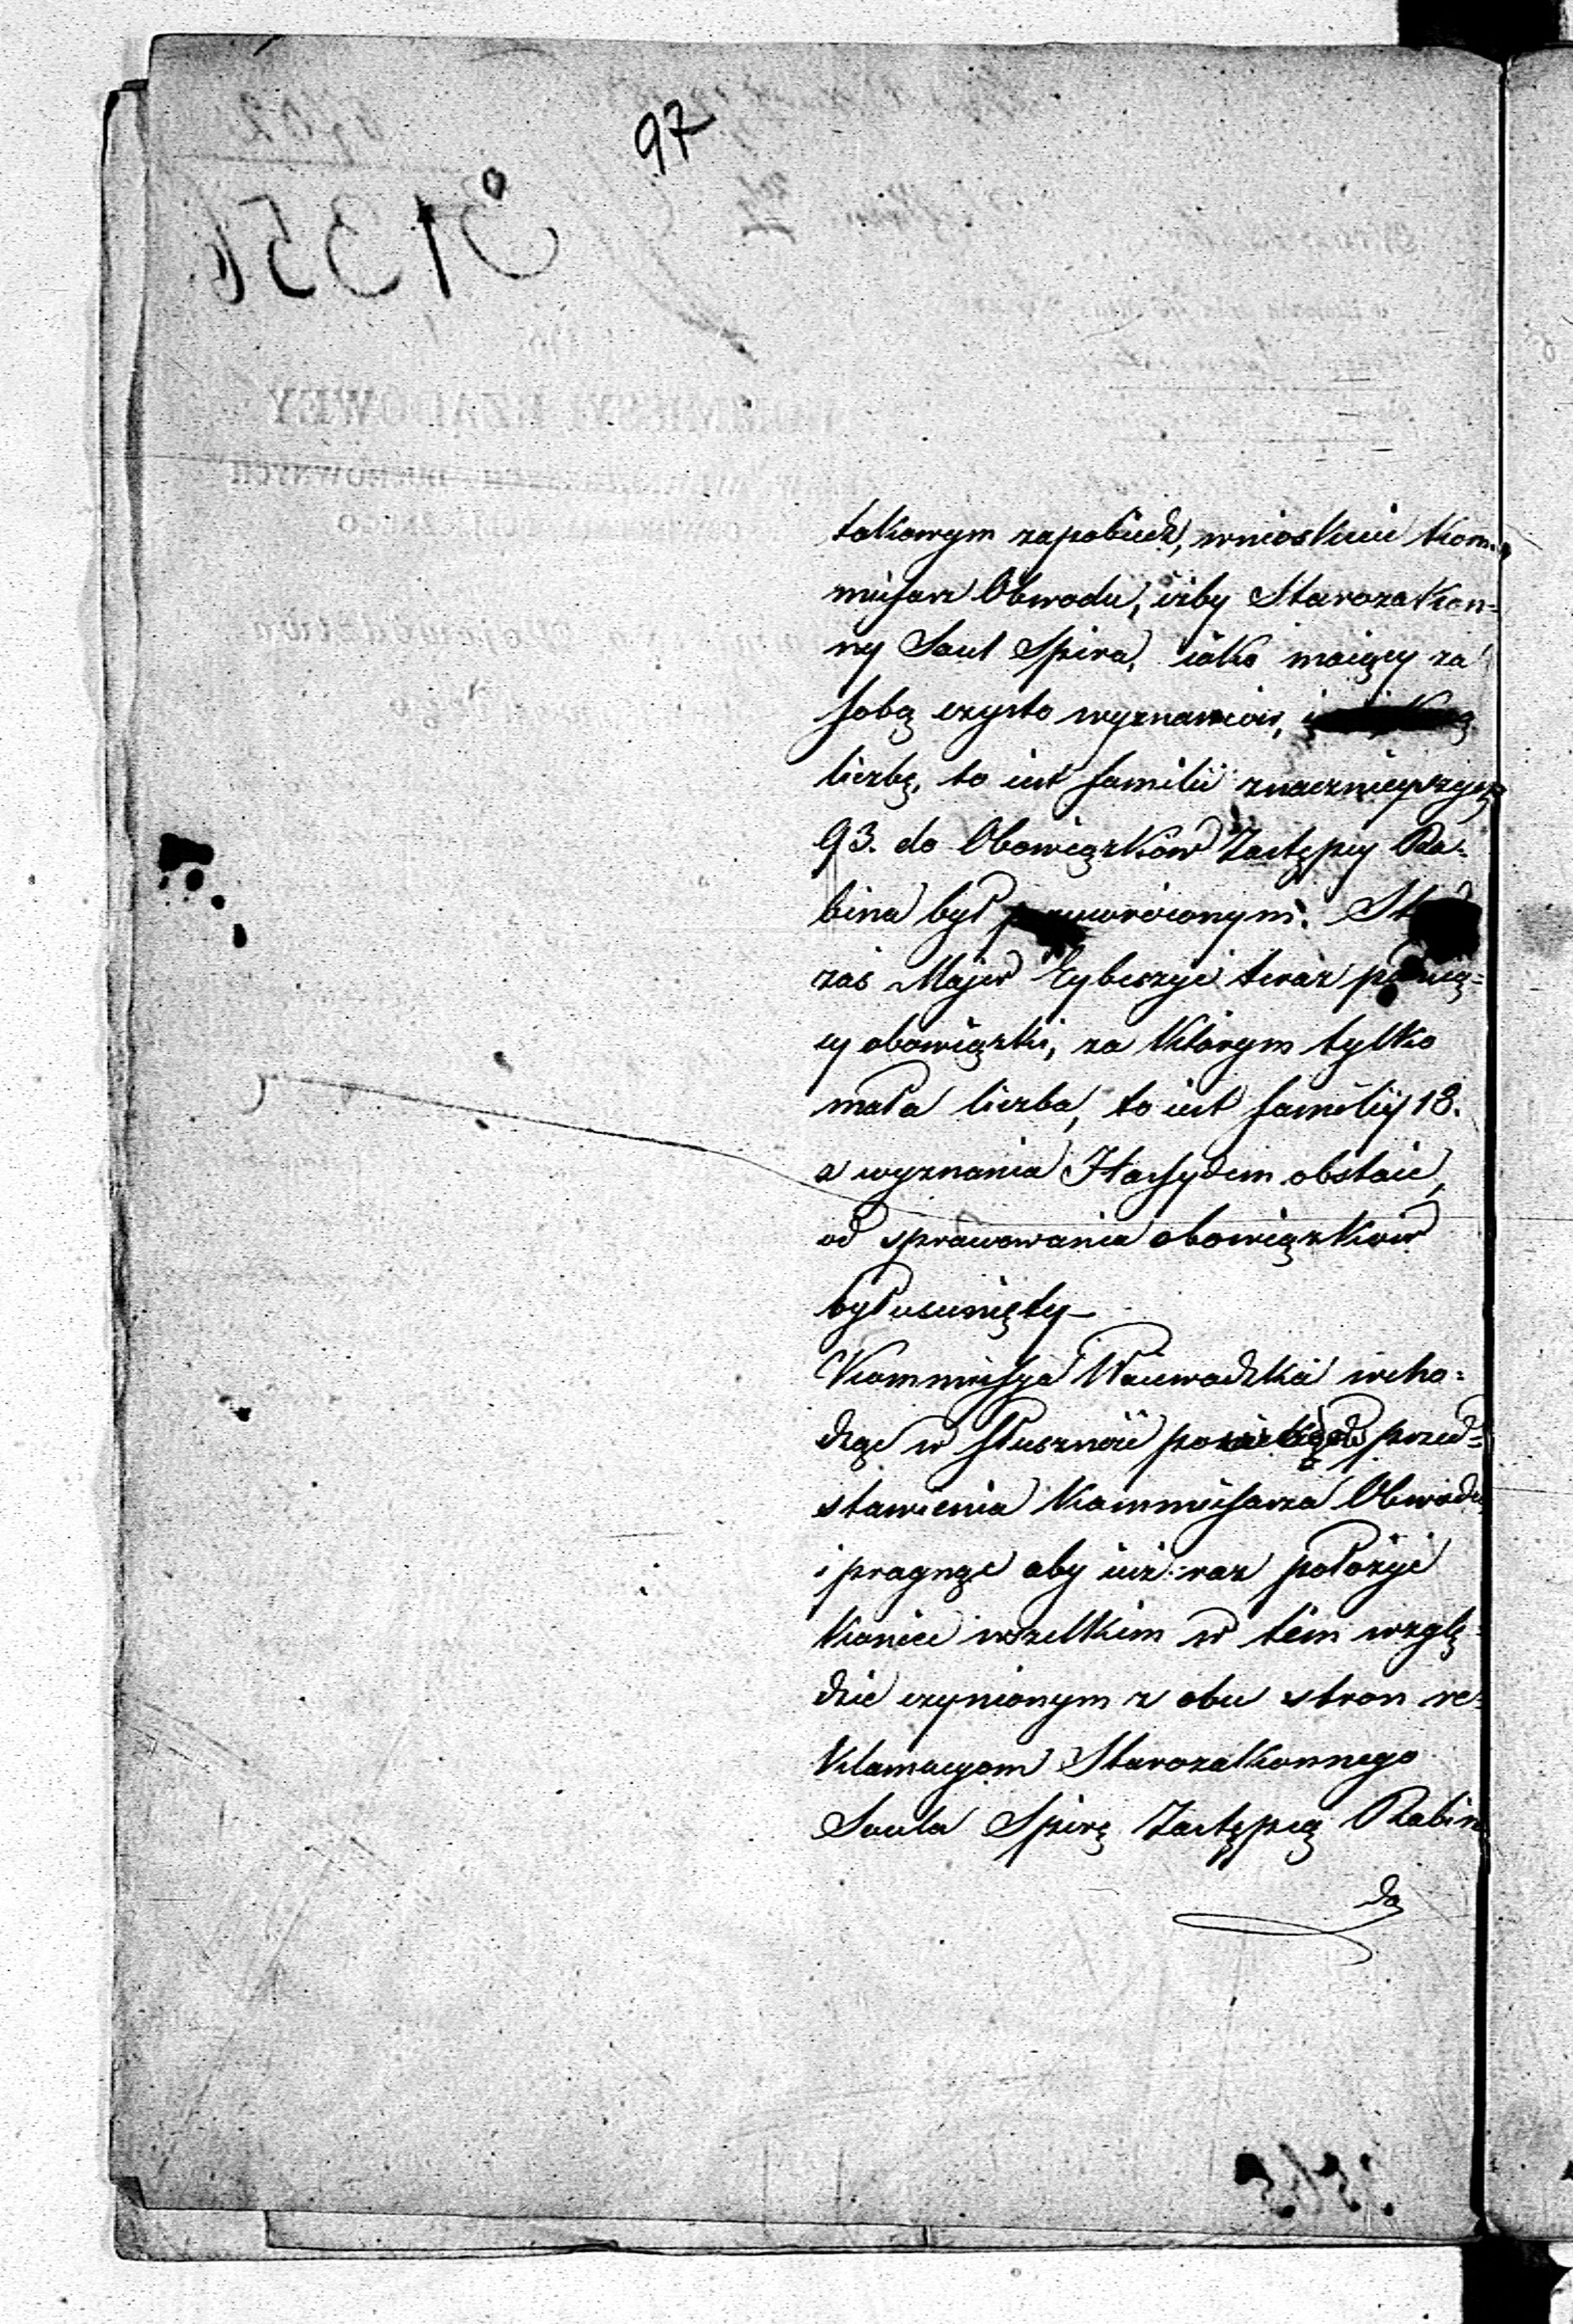 97
takowym zapobiedz, wnioskuie Kom-
missarz Obwodu, iżby Starozakon=
ny Saul Spira, iako maiący za
sobą czysto wyznawców,
liczbę, to iest familii znacznieyszych
93. do Obowiązków Zastępcy Ra=
bina był przywróconym. St
zaś Majer Eybeszyc teraz pełnią=
cy obowiązki, za którym tylko
mała liczba, to iest familiy 18.
z wyznania Hassydem obstaie,
od sprawowania obowiązków
był usunięty
Kommissya Woiewodzka wcho=
dząc w słuszność przed=
stawienia Kommissarza Obwodu
i pragnąc aby iuż raz położyć
koniec wszelkim w tem wzglę=
dzie czynionym z obu stron re=
klamacyom Starozakonnego
Saula Spirę Zastępcą Rabina
do